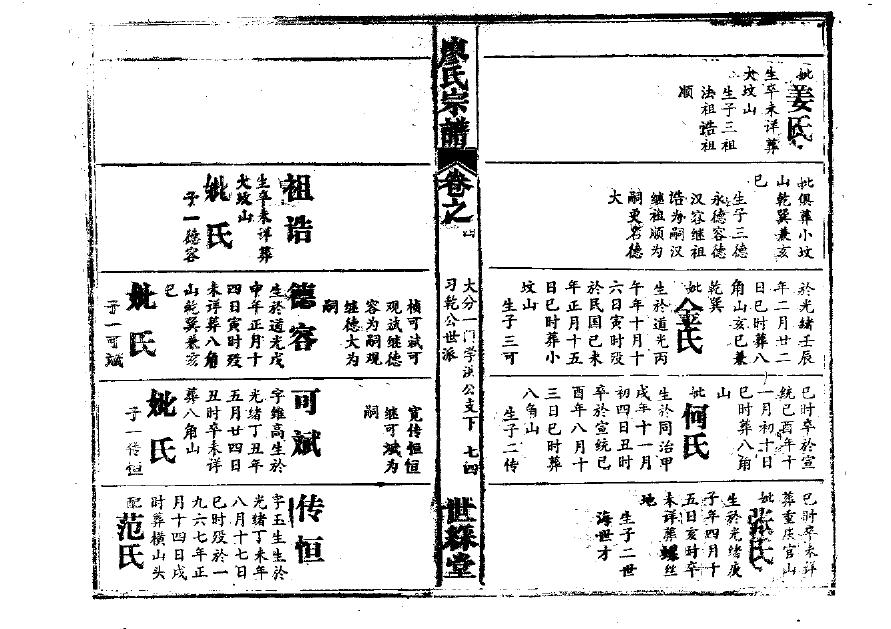 妣姜氏
生卒未详葬
大坟山
生子三祖
法祖诰祖
顺
妣俱葬小坟
山乾巽兼亥
巳
生子三德
永德容德
汉容继祖
诰为嗣汉
继祖顺为
嗣更名德
大
於光绪壬辰
年二月廿二
日巳时葬八
角山亥巳兼
乾巽
妣金氏
生於道光丙
午年十月十
六日寅时殁
於民国己未
年正月十五
日巳时葬小
坟山
生子三可
巳时卒於宣
统己酉年十
一月初十日
巳时葬八角
山
妣何氏
生於同治甲
戌年十一月
初四日丑时
卒於宣统己
酉年八月十
三日巳时葬
八角山
生子二传
巳时卒未详
葬重庆官山
妣张氏
生於光绪庚
子年四月十
五日亥时卒
未详葬螺丝
地
生子二世
海世才
廖氏宗谱
卷之
大分一门学洪公支下
习乾公世派
七四
世䌽堂
祖诰
生卒未详葬
大坟山
妣氏
子一德容
桢可试可
观试继德
容为嗣观
继德大为
嗣
德容
生於道光戊
申年正月十
四日寅时殁
未详葬八角
山乾巽兼亥
巳
妣氏
子一可斌
宽传恒恒
继可斌为
嗣
可斌
字维高生於
光绪丁丑年
五月廿四日
丑时卒未详
葬八角山
妣氏
子一传恒
传恒
字玉生生於
光绪丁未年
八月十七日
巳时殁於一
九六七年正
月十四日戌
时葬横山头
配范氏